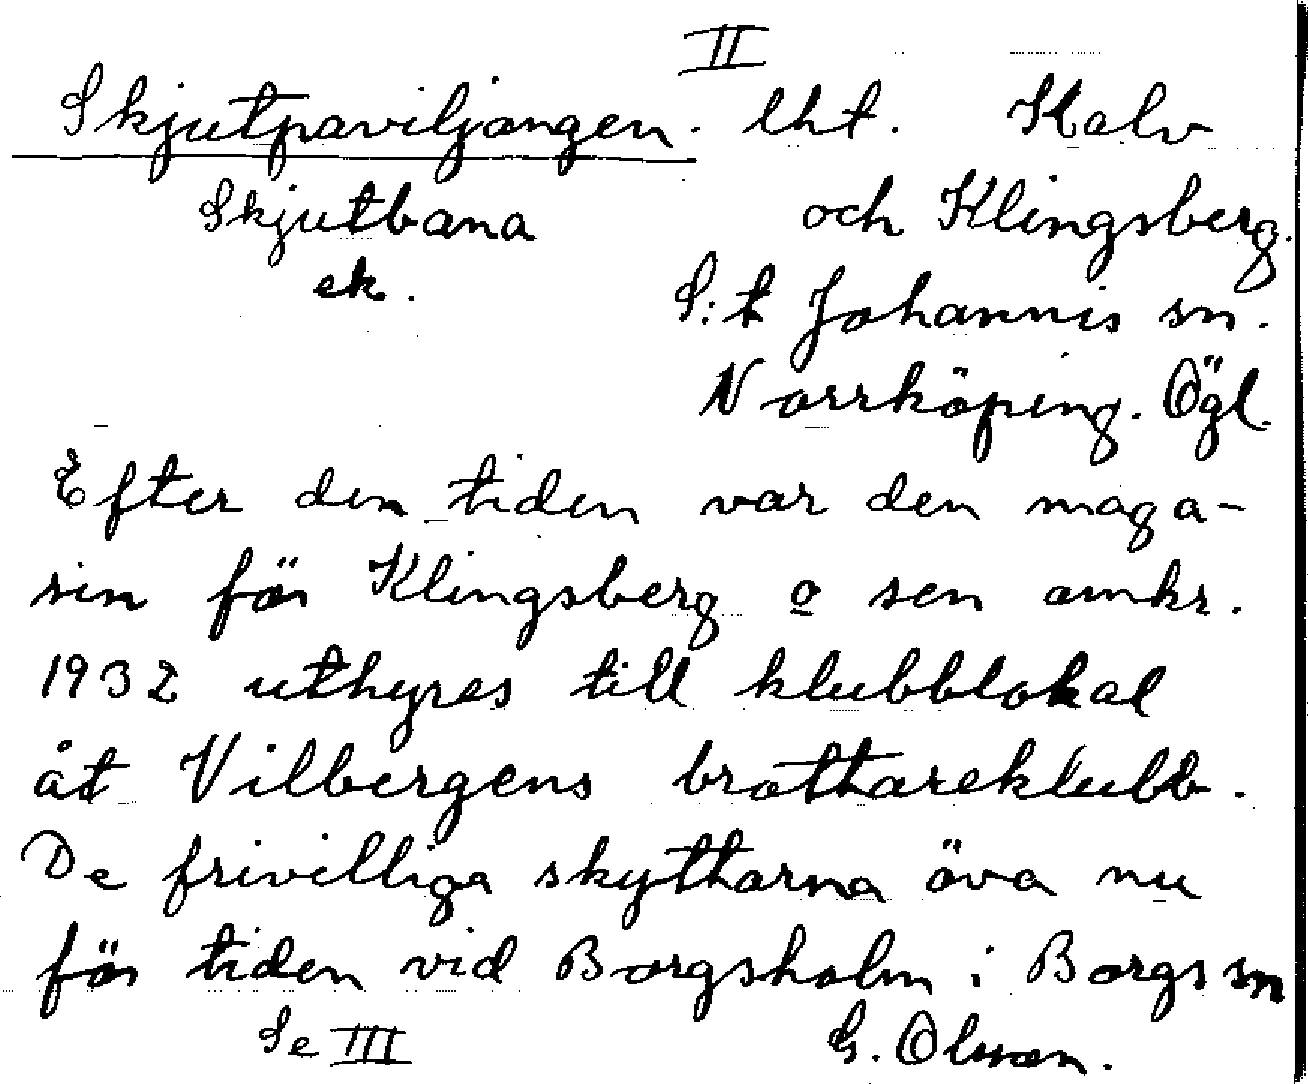 II
Skjutpaviljongen. lht. Kalv
Skjutbana och Klingsberg.
ek. S:t Johannis sn.
Norrköping. Ögl.
Efter den tiden var den maga-
sin för Klingsberg o sen omkr.
1932 uthyres till klubblokal
åt Vilbergens brottareklubb.
De frivilliga skyttarna öva nu
för tiden vid Borgsholm i Borgs sn
Se III G. Olsson.